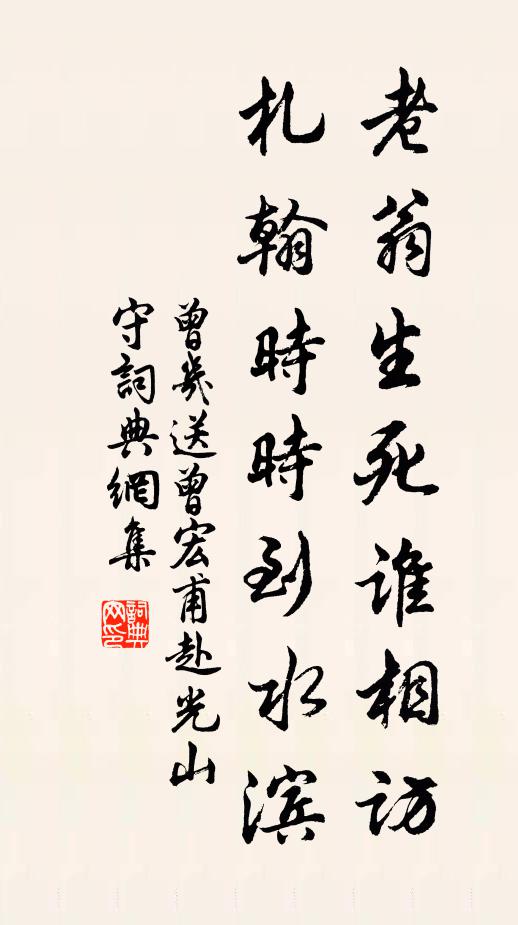 老翁生死谁相访
札翰時時到水滨
曾幾送曾宏甫赴光山
守詞典網集
詞典网印